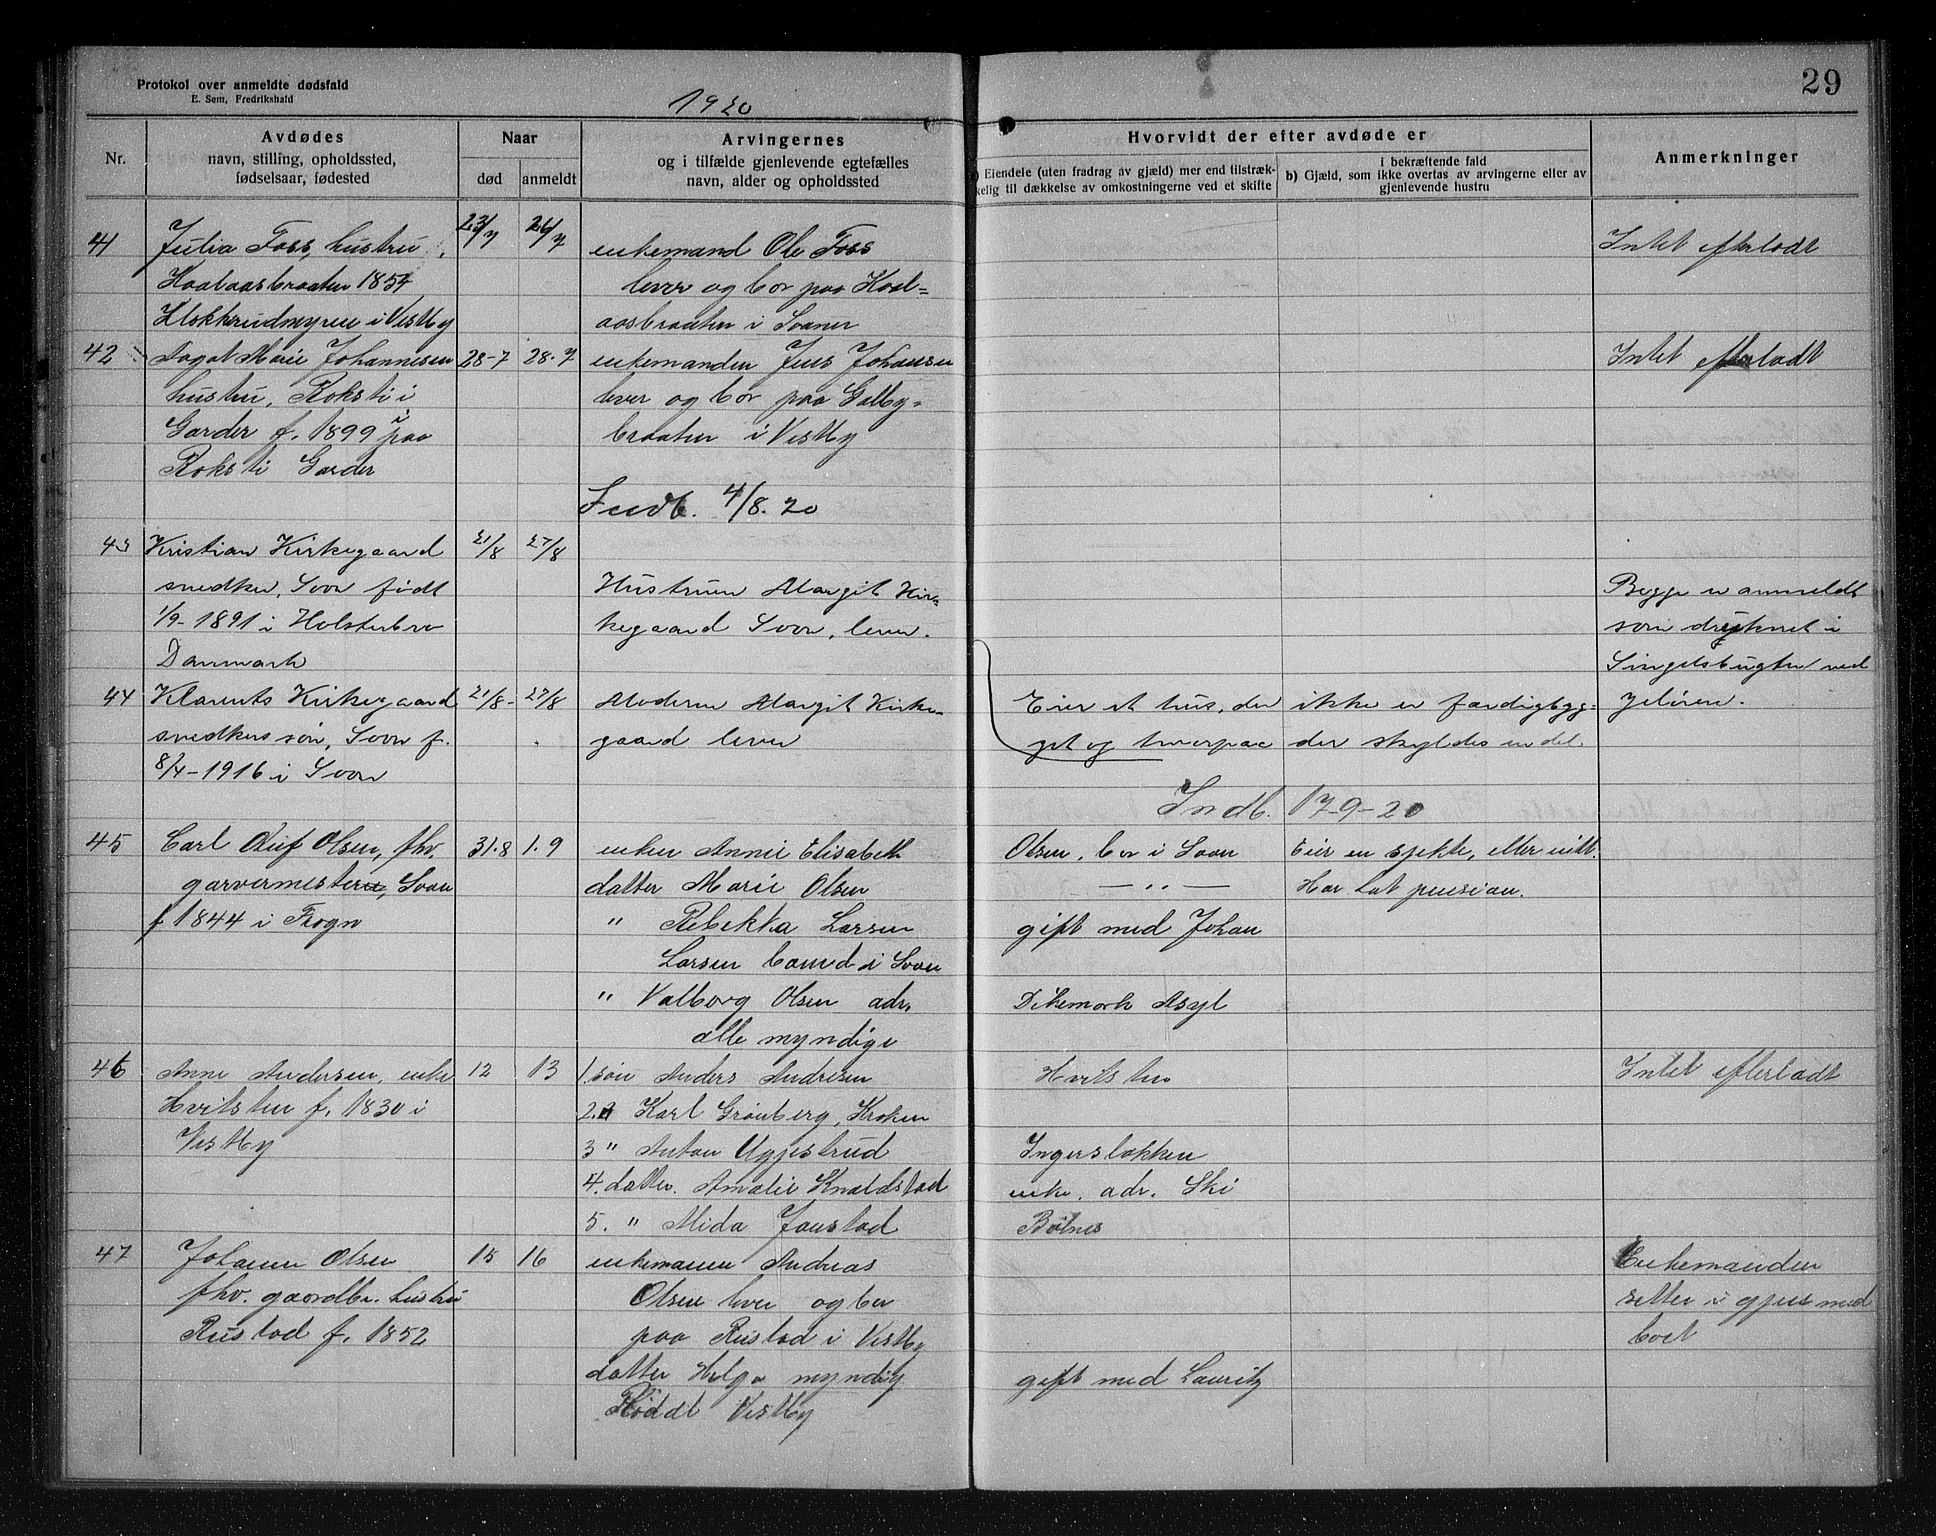 Protokol over anmeldte dødsfald
E. Sem, Fredrikshald
1920
29
Nr.
Avdødes
navn, stilling, opholdssted,
fødselsaar, fødested
Naar
død
anmeldt
Arvingernes
og i tilfælde gjenlevende egtefælles
navn, alder og opholdssted
Hvorvidt der efter avdøde er
Eiendele (uten fradrag av gjæld) mer end tilstræk-
kelig til dækkelse av omkostningerne ved et skifte
i bekræftende fald
b) Gjæld, som ikke overtas av arvingerne eller av
gjenlevende hustru
Anmerkninger
41 Julia Foss, hustru 23/7 26/7 enkemand Ole Foss Intet efterladt
1854 lever og bor paa Kaal=
i Vestby aasbraaten i Soner
42 Dagot Marie Johannesen 28-7 28-7 enkemanden Jens Johansen Intet efterladt
hustru, Roksti i lever og bor paa Galby-
Garder f. 1899 i paa braaten i Vestby
Roksti Garder
Indb. 4/8. 20
43 Kristian Kirkegaard 21/8 27/8
snedker, Soon født Hustruen Margit Kir= Begge er anmeldt
1/9-1891 i Holsterbro kegaard Soon, lever. som druknet i
Danmark ved
44 Klarents Kirkegaard 21/8- 27/8 Moderen Margit Kirke- Eier et hus, der ikke er færdigbyg= Jeløen.
snedkers søn, Soon f. gaard lever get og hvorpaa der skyldes en del.
8/4-1916 i Soon
Indb. 17-9-20
45 Carl Oluf Olsen, fhv. 31.8 1.9 enken Annie Elisabeth Olsen, bor i Soon Eier en sjekte, ellers intt.
garvermester, Soon datter Marie Olsen — " — Har hat pension.
f 1844 i Frogn " Rebekka Larsen gift med Johan
Larsen i Soon
" Valborg Olsen adr. Dikemark Asyl
alle myndige
46 Anne Andersen, enke 12 13 1. søn Anders Andresen Hvitsten Intet efterladt
Hvitsten f. 1830 i 2. " Karl Grønberg, Kroken
Vestby 3 " Anton Uggestrud Ingerslokken
4. datter. Amalie Knaldstad enke. adr. Ski
5. " Mida Jonstad Bølnes
47 Johanne Olsen 15 16 enkemanden Andreas Enkemanden
fhv. gaardbr. hustru Olsen lever og bor sitter i med
Rustad f. 1852 paa Rustad i Vestby boet
datter Helga myndig gift med Lauritz
Røddt Vestby